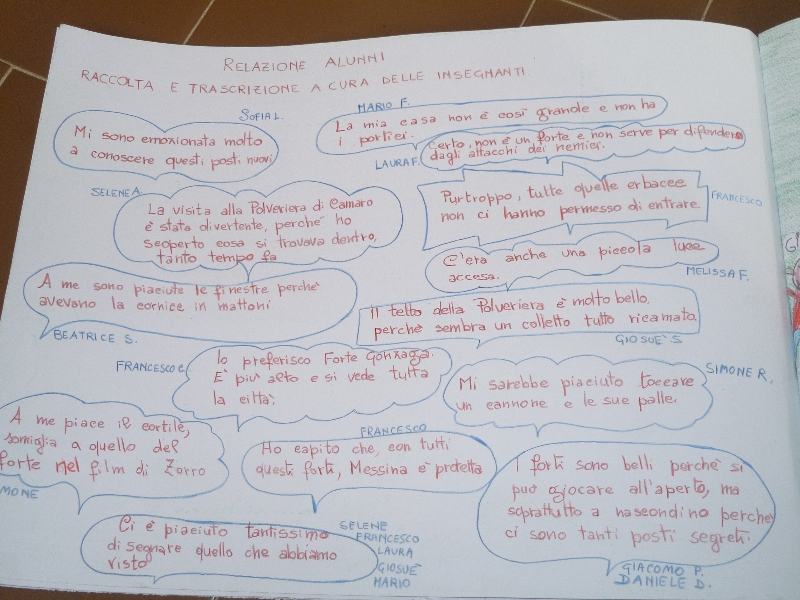 RELAZIONE ALUNNI
RACCOLTA E TRASCRIZIONE A CURA DELLE INSEGNANTI
SOFIA L.
Mi sono emozionata molto
a conoscere questi posti nuovi
MARIO F.
La mia casa non è così grande e non ha
i portici.
LAURA F.
Certo, non è un forte e non serve per difendere
dagli attacchi dei nemici.
SELENE A.
La visita alla Polveriera di Camaro
è stata divertente, perché ho
scoperto cosa si trovava dentro,
tanto tempo fa
FRANCESCO
Purtroppo, tutte quelle erbacce
non ci hanno permesso di entrare.
C'era anche una piccola luce
accesa.
MELISSA F.
A me sono piaciute le finestre perchè
avevano la cornice in mattoni
BEATRICE S.
Il tetto della Polveriera è molto bello,
perchè sembra un colletto tutto ricamato.
GIOSUE' S.
FRANCESCO C.
Io preferisco Forte Gonzaga.
E' più alto e si vede tutta
la città.
SIMONE R.
Mi sarebbe piaciuto toccare
un cannone e le sue palle.
A me piace il cortile,
somiglia a quello del
forte nel film di Zorro
MONE
FRANCESCO
Ho capito che, con tutti
questi forti, Messina è protetta
I forti sono belli perchè si
può giocare all'aperto, ma
soprattutto a nascondino perchè
ci sono tanti posti segreti.
GIACOMO P.
DANIELE D.
Ci è piaciuto tantissimo
disegnare quello che abbiamo
visto
SELENE
FRANCESCO
LAURA
GIOSUE'
MARIO